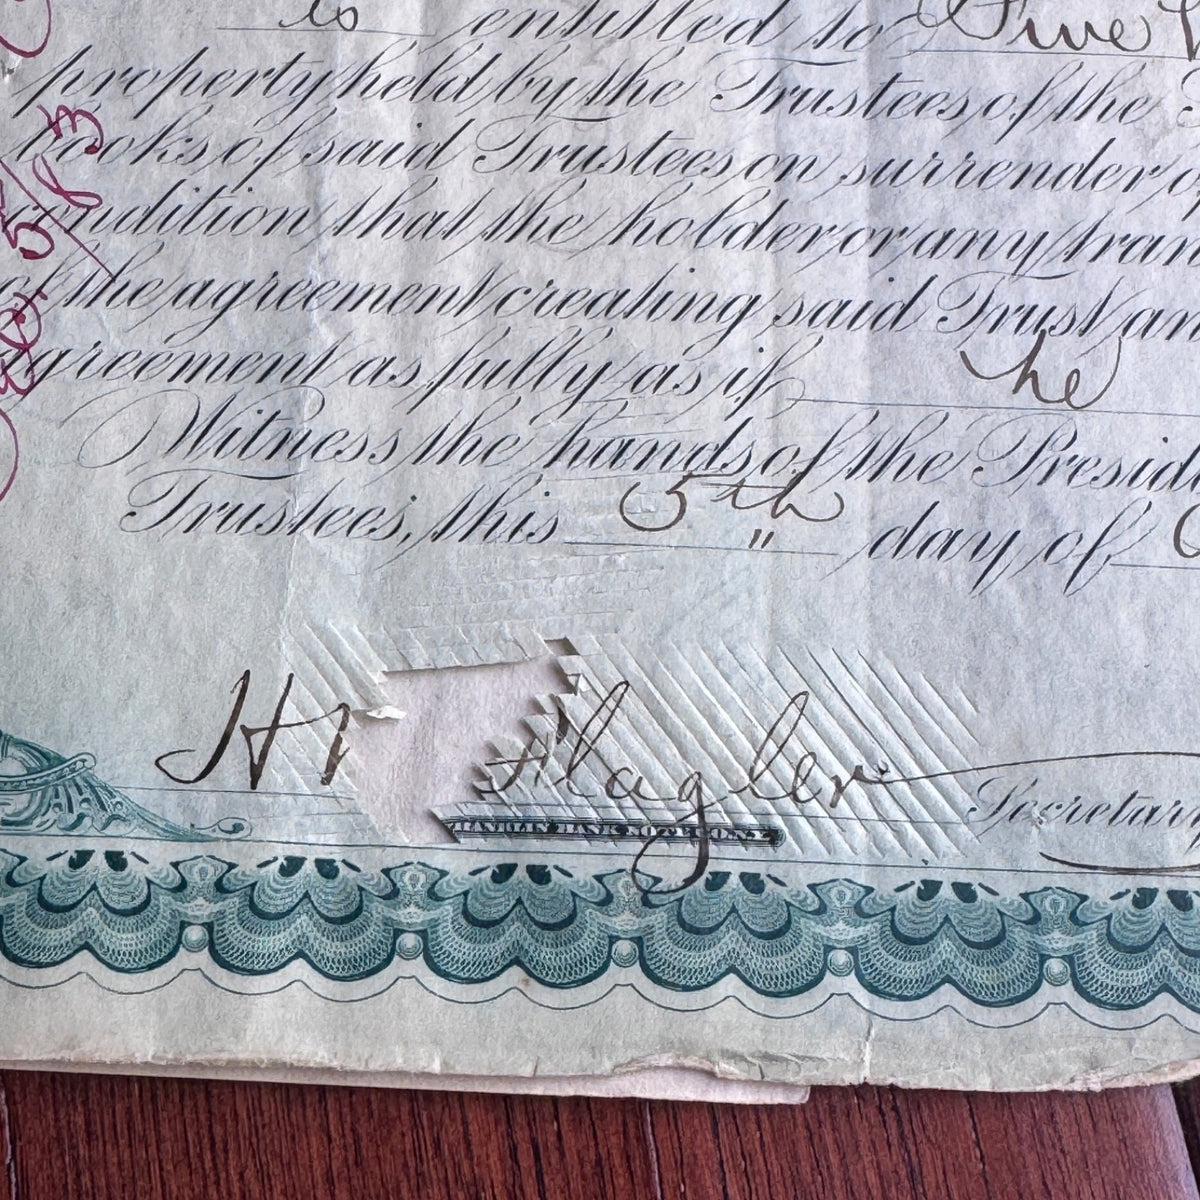 is entitled to Five
property held by the Trustees of the
books of said Trustees on surrender of
condition that the holder or any tran
of the agreement creating said Trust an
agreement as fully as if he
Witness the hands of the Presid
Trustees, this 5th day of
H Flagler Secretary
FRANKLIN BANK NOTE CO N.Y.